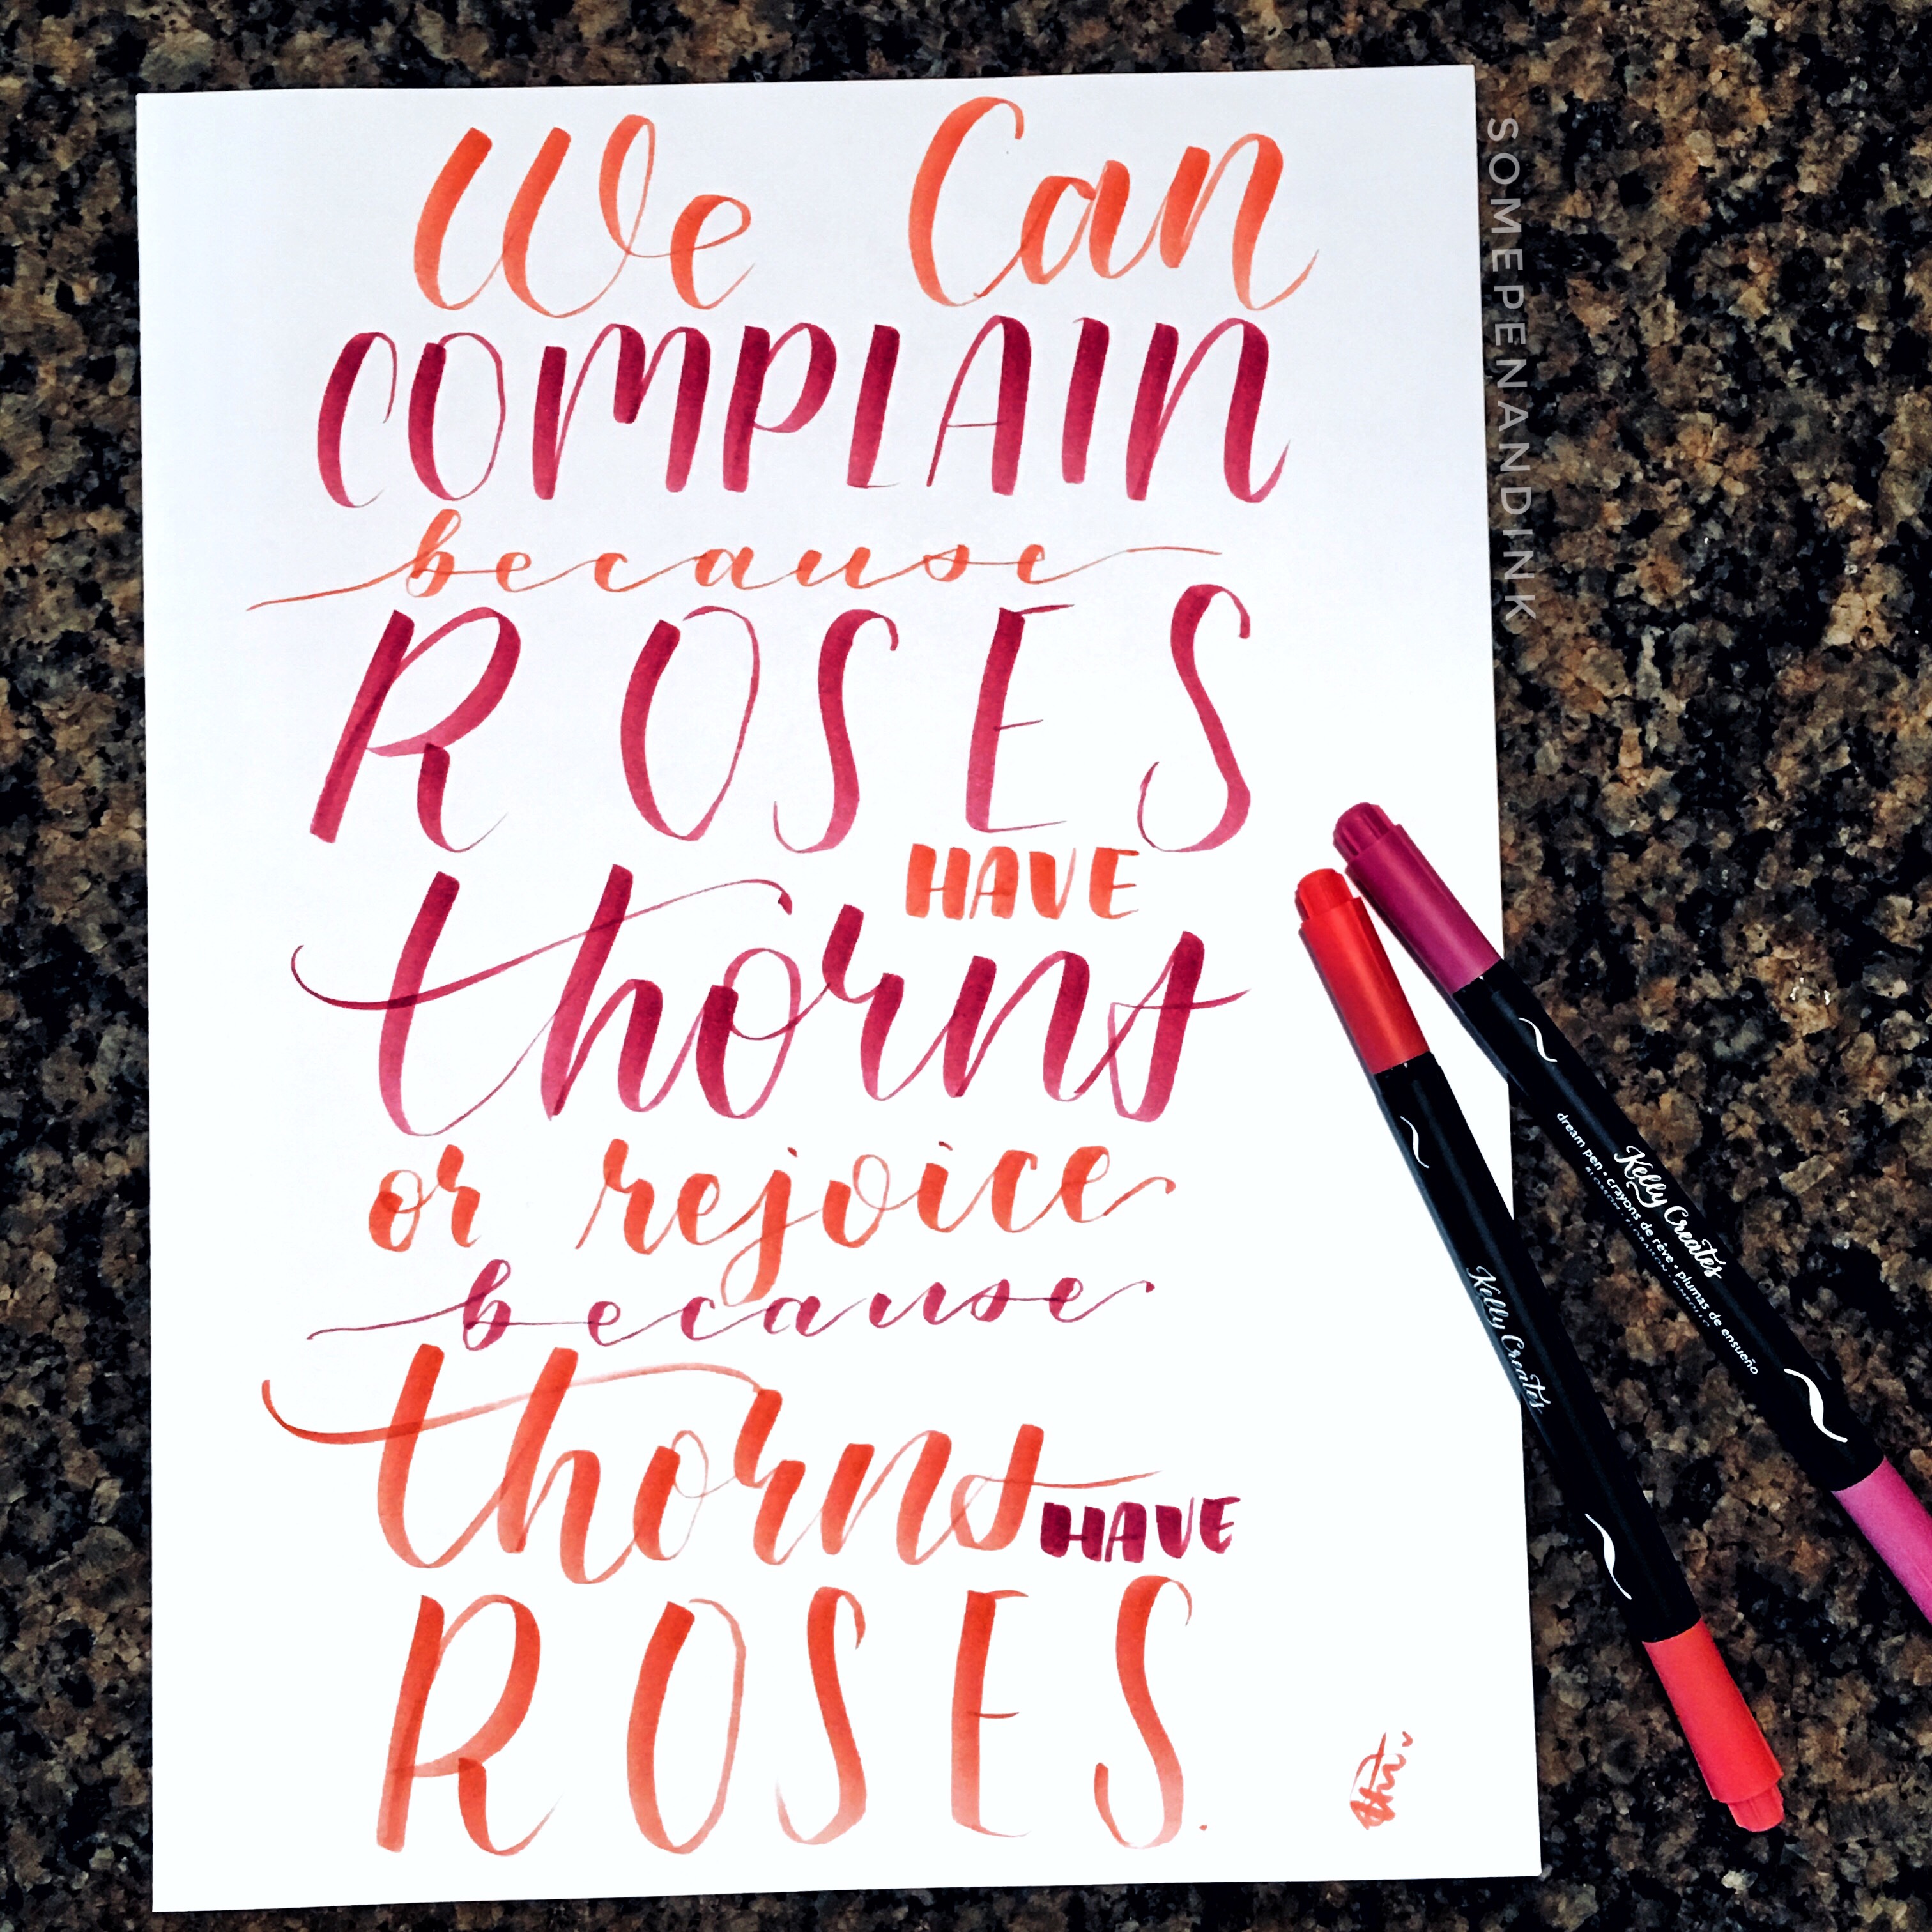 We Can
COMPLAIN
because
ROSES
HAVE
thorns
or rejoice
because
thorns HAVE
ROSES.
SOMEPENANDINK
Kelly Creates
dream pen • crayons de rêve • plumas de ensueño
Kelly Creates